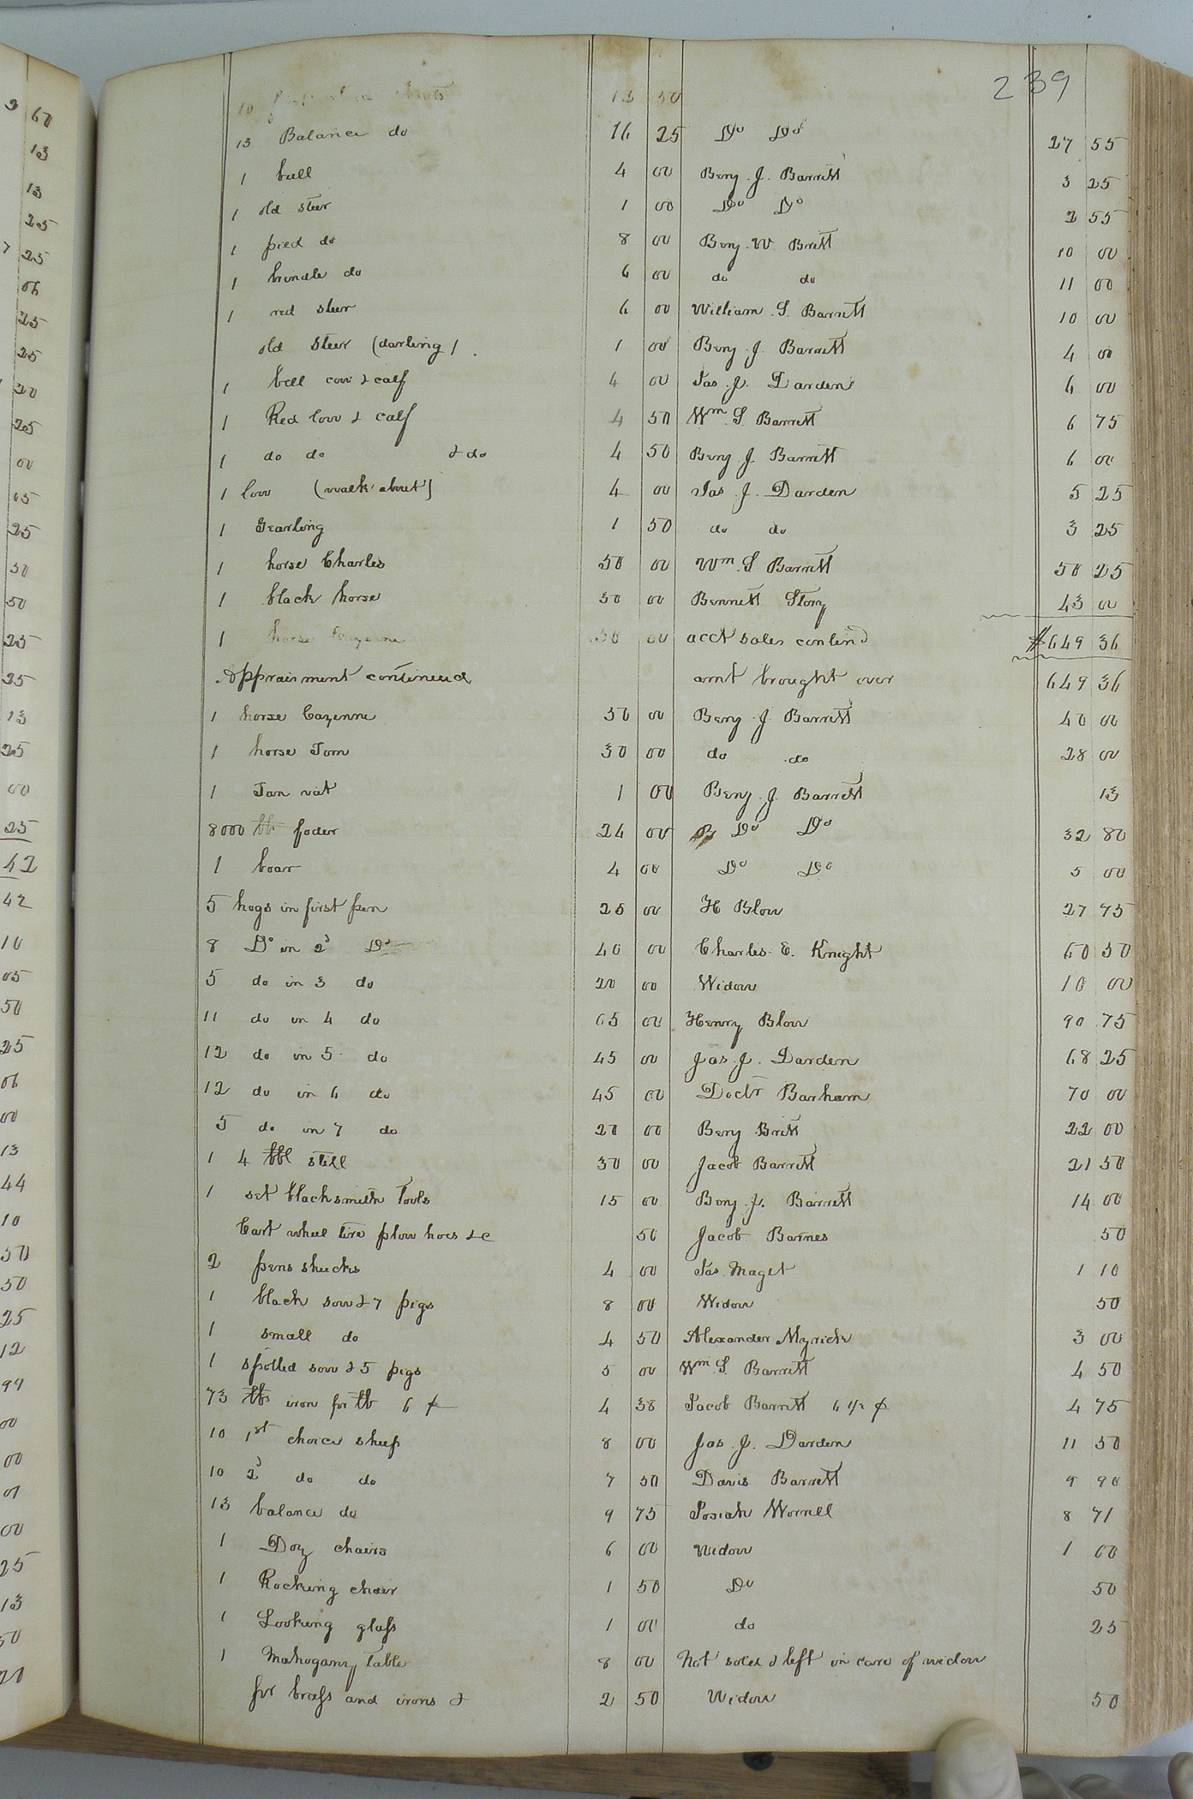 239
10 13 50
13 Balance do 16 25 Do Do 27 55
1 bull 4 00 Benj. J. Barrett 3 25
1 old steer 1 00 Do Do 2 55
1 pied do 8 00 Benj. W. Britt 10 00
1 brindle do 6 00 do do 11 00
1 red steer 6 00 William S. Barrett 10 00
old steer (darling) 1 00 Benj. J. Barrett 4 00
1 bell cow & calf 4 00 Jas. J. Darden 6 00
1 Red Cow & calf 4 50 Wm. S. Barrett 6 75
1 do do & do 4 50 Benj. J. Barrett 6 00
1 Cow (walk about) 4 00 Jas. J. Darden 5 25
1 Yearling 1 50 do do 3 25
1 horse Charles 50 00 Wm. S Barrett 50 25
1 black horse 50 00 Bennett Story 43 00
1 horse Cayenne 30 00 acct sales contend $649 36
Appraisment continued amt brought over 649 36
1 horse Cayenne 30 00 Benj. J. Barrett 40 00
1 horse Tom 30 00 do do 28 00
1 Tan vat 1 00 Benj. J. Barrett 13
8000 lb foder 24 00 Do Do 32 80
1 boar 4 00 Do Do 5 00
5 hogs in first pen 25 00 H Blow 27 75
8 Do in 2d Do 40 00 Charles E. Knight 60 50
5 do in 3 do 20 00 Widow 10 00
11 do in 4 do 65 00 Henry Blow 90 75
12 do in 5 do 45 00 Jas. J. Darden 68 25
12 do in 6 do 45 00 Doctr Barham 70 00
5 do in 7 do 20 00 Benj Britt 22 00
1 4 bbl still 30 00 Jacob Barrett 21 50
1 set blacksmith Tools 15 00 Benj. J. Barrett 14 00
Cart wheel tire plow hoes &c 50 Jacob Barnes 50
2 pens shucks 4 00 Jas. Maget 1 10
1 black sow & 7 pigs 8 00 Widow 50
1 small do 4 50 Alexander Myrick 3 00
1 spotted sow & 5 pigs 5 00 Wm. S. Barrett 4 50
73 lbs iron for lb 6 ¢ 4 38 Jacob Barrett 6 1/2 ¢ 4 75
10 1st choice sheep 8 00 Jas. J. Darden 11 50
10 2d do do 7 50 Davis Barrett 9 90
13 balance do 9 75 Josiah Worrell 8 71
1 Doz chairs 6 00 Widow 1 00
1 Rocking chair 1 50 Do 50
1 Looking glass 1 00 do 25
1 Mahogany Table 8 00 Not sold & left in care of widow
pr brass and irons & 2 50 Widow 50